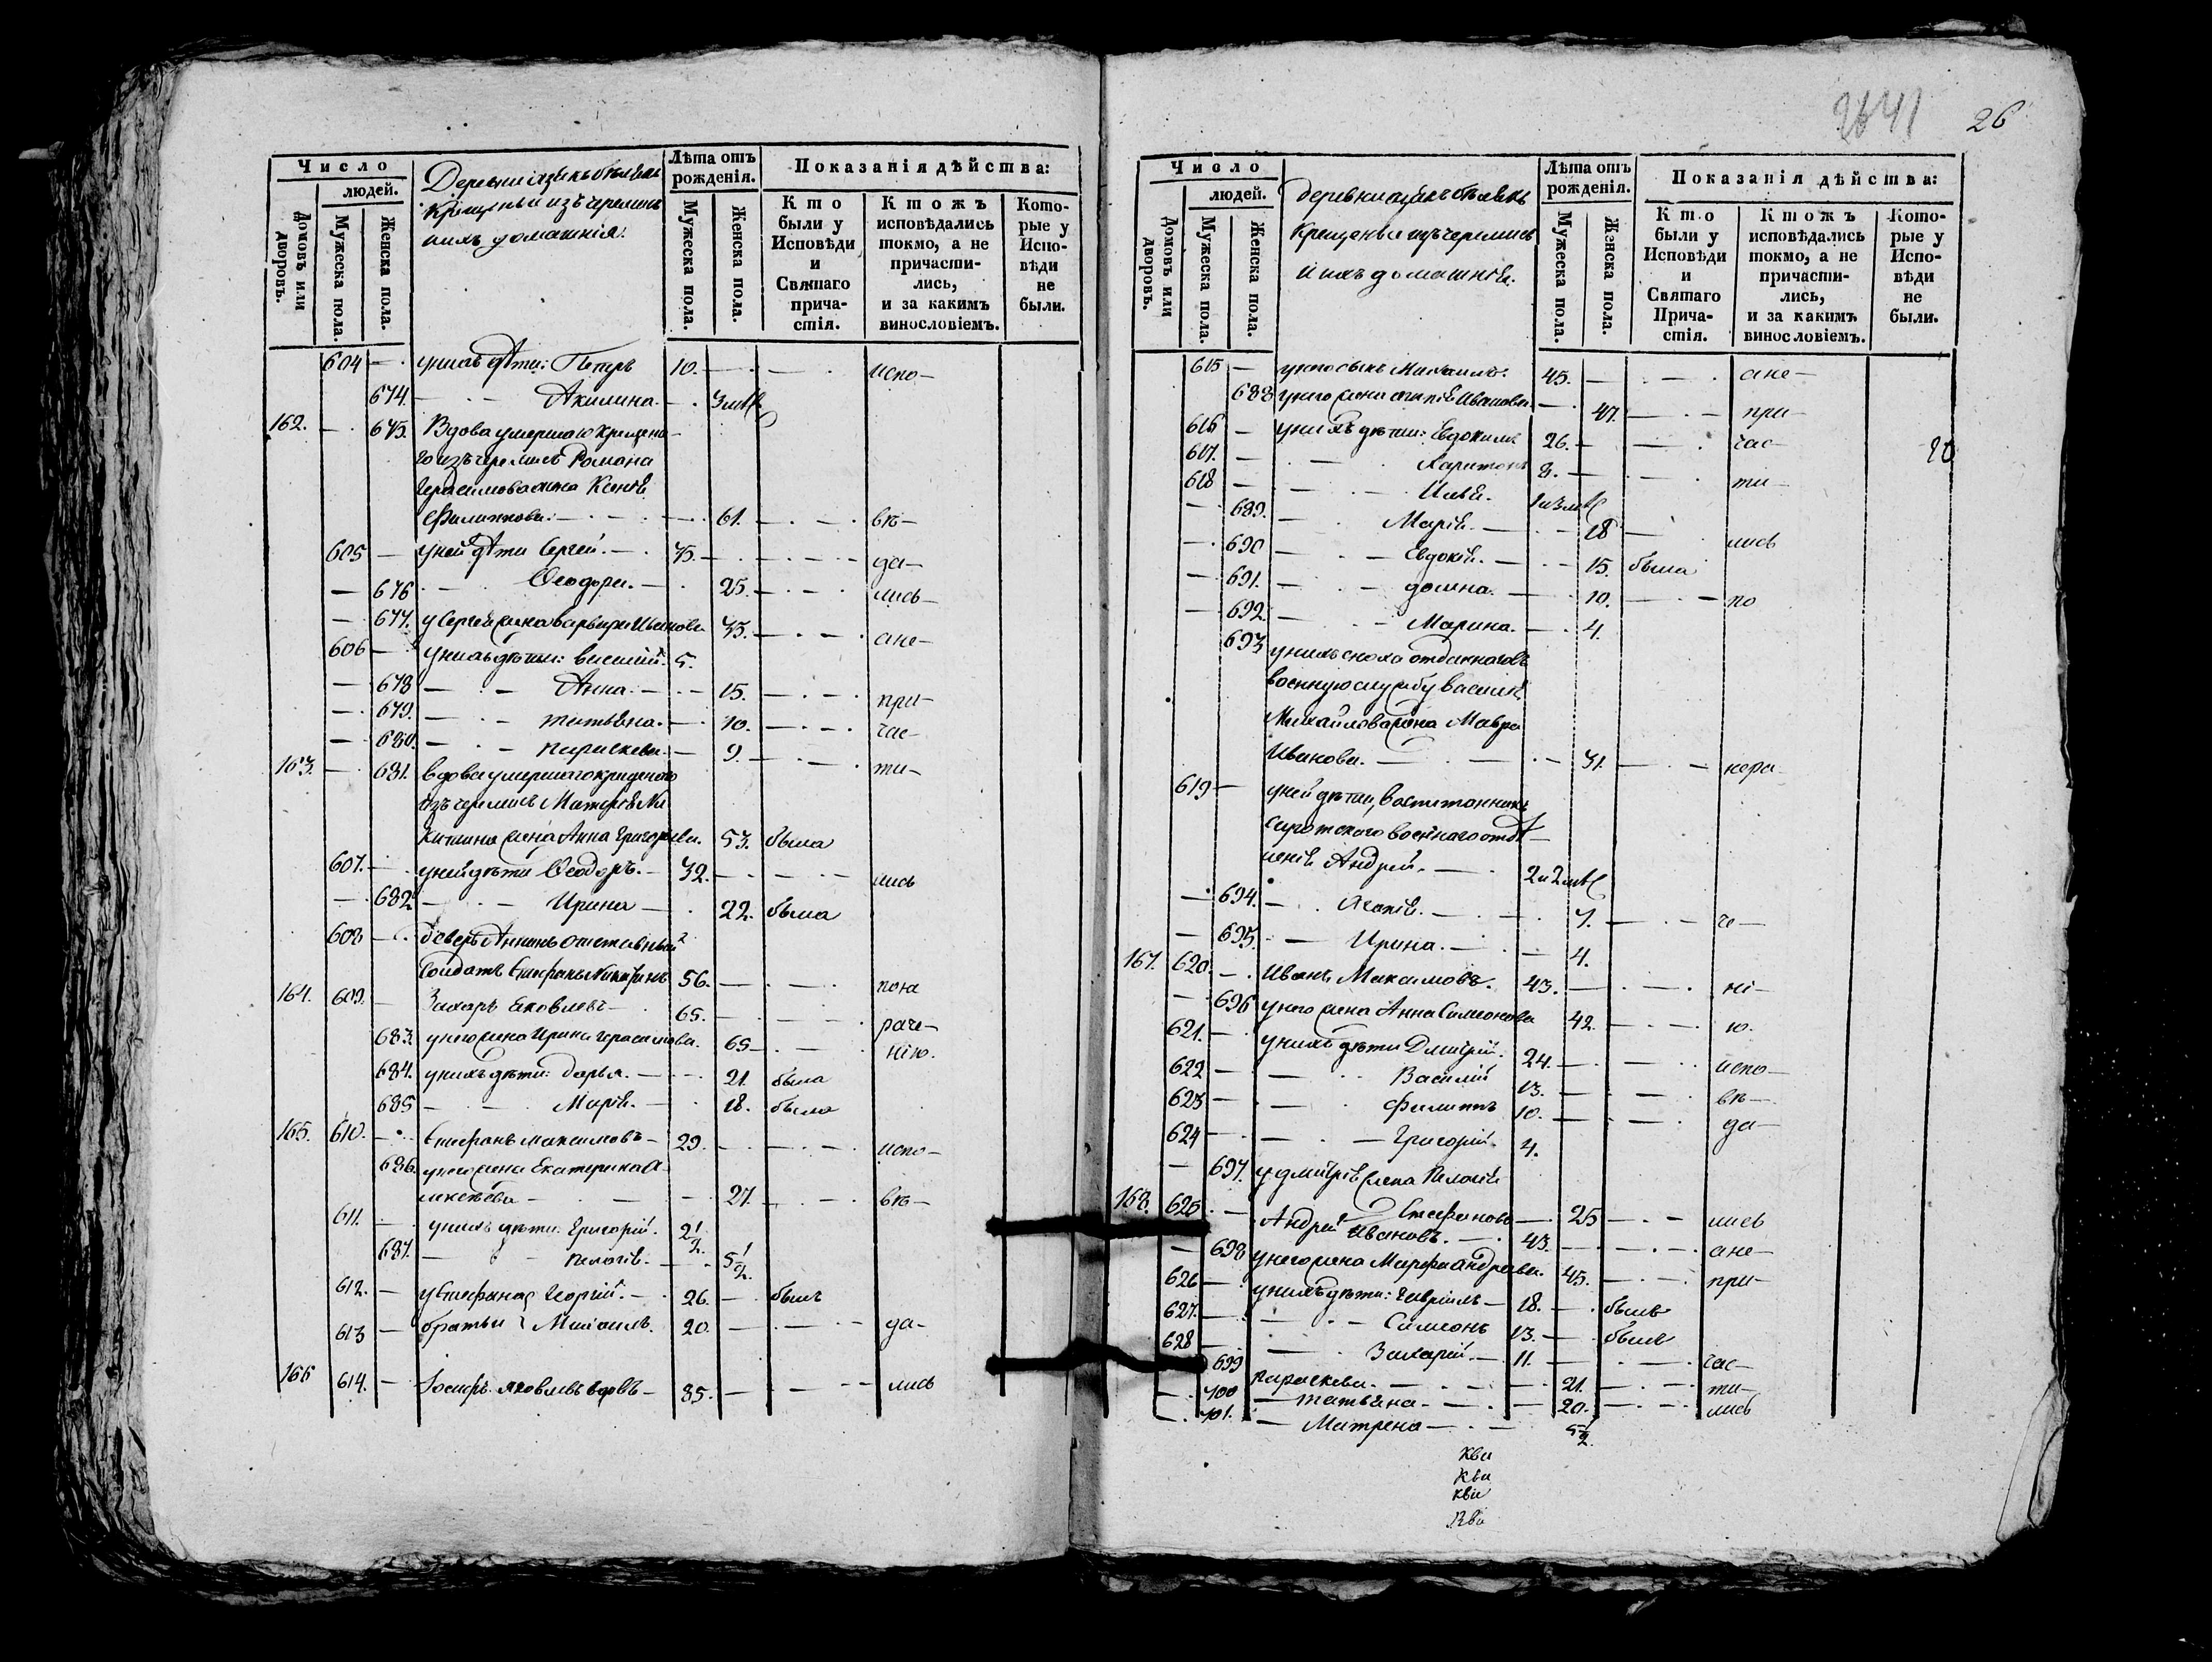 Число
людей.
Домовъ или дворовъ.
Мужеска пола.
Женска пола.
Деревни
крещеныи изъ черемисъ
ихъ домашнія.
Лѣта отъ рожденія.
Мужеска пола.
Женска пола.
Показанія дѣйства:
Кто были у Исповѣди и Святаго причастія.
Ктожъ исповѣдались токмо, а не причастились, и за какимъ винословіемъ.
Которые у Исповѣди не были.
604 — у нихъ дѣти: Петръ 10. — испо-
674. — Акилина. — 3 мѣ
162. — 675. Вдова умершаго крещена-
го изъ черемисъ Романа
Герасимова жена Ксенія
Филиппова. — 61. — вѣ-
605 — у ней дѣти Сергей. — 35. — да-
— 676 — Ѳеодора. — 25. — лись-
— 677. у Сергея жена Варвара Иванова 35. — а не-
606 — у нихъ дѣти: Василий. 5.
— 678 — Анна. — 15. — при-
— 679. — Татьяна. — 10. — час-
— 680. — Параскева. — 9. — ти-
163. — 681. вдова умершаго крещенаго
изъ черемисъ Матфея Ни
китина жена Анна Григорьева. 53. была
607. — у ней дѣти Ѳеодоръ. — 32. — лись
— 682. — Ирина — 22. была
608 — деверь Аннинъ отставный
солдатъ Стефанъ Никитинъ 56. — по не
164. 609. — Захаръ Яковлевъ — 65. — раче-
683. у него жена Ирина Герасимова. 65 — нію.
684. у нихъ дѣти: Дарья. — 21. была
685 — Марія. — 18. была
165. 610. — Стефанъ Максимовъ — 29. — испо-
686. у него жена Екатерина А-
лексѣева — 27. — вѣ-
611. — у нихъ дѣти: Григорий. 2 1/2.
687. — Пелагія. — 5 1/2.
612. — у Стефана Георгий. — 26. — былъ
613 — братья Михаилъ. 20. — да-
166 614. — Іосифъ Яковлевъ вдовъ — 85. — лись
2641
26
Число
людей.
Домовъ или дворовъ.
Мужеска пола.
Женска пола.
деревни
крещеные изъ черемисъ
и ихъ домашніе.
Лѣта отъ рожденія.
Мужеска пола.
Женска пола.
Показанія дѣйства:
Кто были у Исповѣди и Святаго Причастія.
Ктожъ исповѣдались токмо, а не причастились, и за какимъ винословіемъ.
Которые у Исповѣди не были.
615 — у него сынъ Михаилъ. 45. — а не-
688 у него жена Иванова — 47. — при-
616 — у нихъ дѣти: Евдокимъ 26. — час-
617. — Харитонъ 8. — ти-
618 — Илья. 1 и 3 мѣ
— 689. — Марія. — 18 — лись
— 690 — Евдокія. — 15. была
— 691. — Домна. — 10. — по
— 692. — Марина. — 4.
693 у нихъ сноха отданнаго въ
военную службу Василія
Михайлова жена Мавра
Иванова. — 31. — нера-
619 — у ней дѣти, воспитанникъ
сиротскаго военнаго отдѣ-
ленія Андрей. — 2 и 2 мѣ
— 694. — 7. — че-
— 695. — Ирина. — 4.
167. 620. — Иванъ Максимовъ. 43. — ні-
— 696 у него жена Анна Симеонова 42. — ю.
621. — у нихъ дѣти Дмитрій. 24. — испо-
622 — Василій 13. — вѣ-
623 — Филиппъ 10. — да-
624 — Григорий. 4.
— 697. у Дмитрія жена Пелагія
Стефанова — 25 — лись
168. 625. — Андрей Ивановъ. — 43. — а не-
— 698 у него жена Марфа Андреева. 45. — при-
626 — у нихъ дѣти: Гавріилъ — 18. — былъ
627. — Симеонъ 13. — былъ
628 — Захарій. — 11. — час-
699 Параскева. — 21. — ти-
— 700 — Татьяна. — 20. — лись
— 701. — Матрена — 5 1/2.